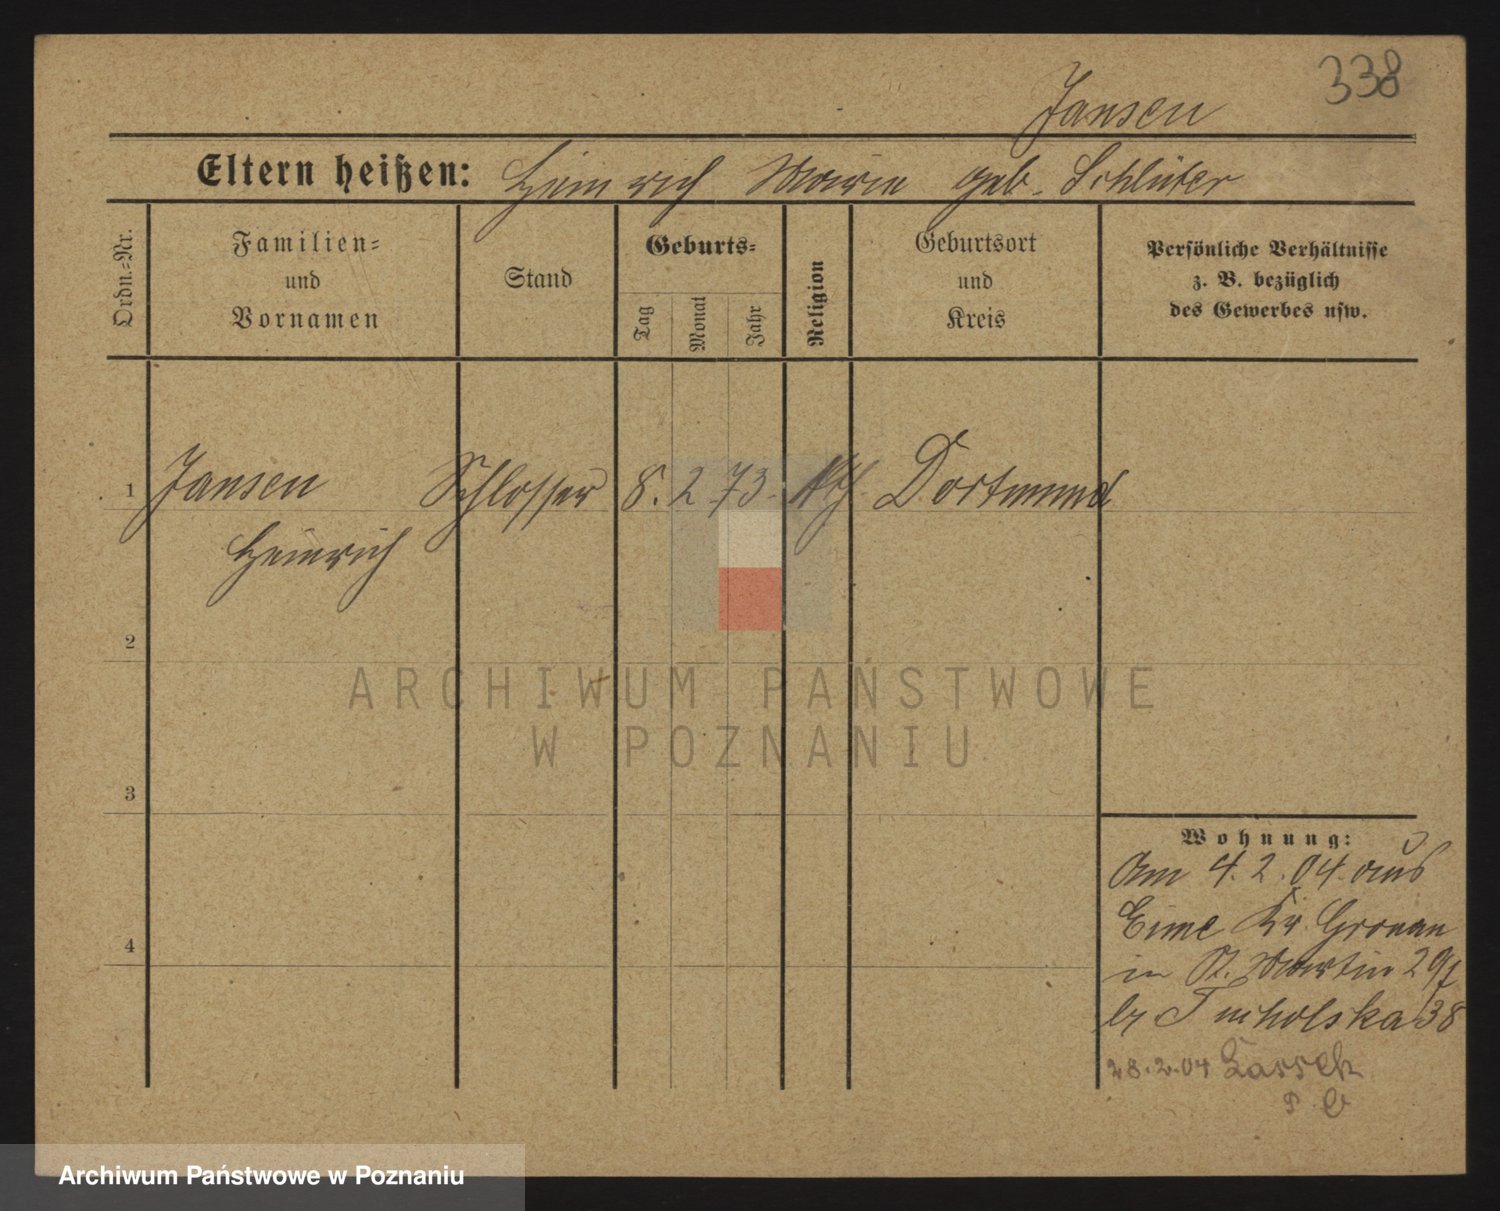 338
Jansen
Eltern heißen: Heinrich Marie geb. Schlüter
Ordn.=Nr.
Familien=
und
Vornamen
Stand
Geburts=
Tag
Monat
Jahr
Religion
Geburtsort
und
Kreis
Persönliche Verhältnisse
z. B. bezüglich
des Gewerbes usw.
1 Jansen Schlosser 8. 2 73. kth Dortmund
Heinrich
2
ARCHIWUM PAŃSTWOWE
W POZNANIU
3
4
Wohnung:
Am 4. 2. 04. aus
Eime Kr. Gronau
in St. Martin 29
38
28.2.04
Archiwum Państwowe w Poznaniu